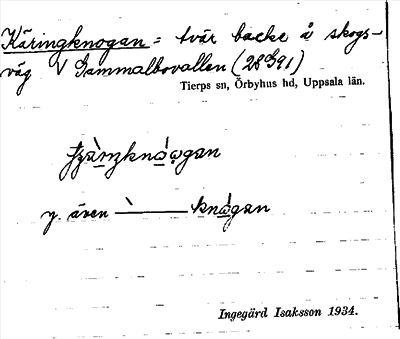 Käringknogan = tvär backe å skogs-
väg V Gammalbovallen (28G91)
Tierps sn, Örbyhus hd, Uppsala län.
y. även ——— knågan
Ingegärd Isaksson 1934.